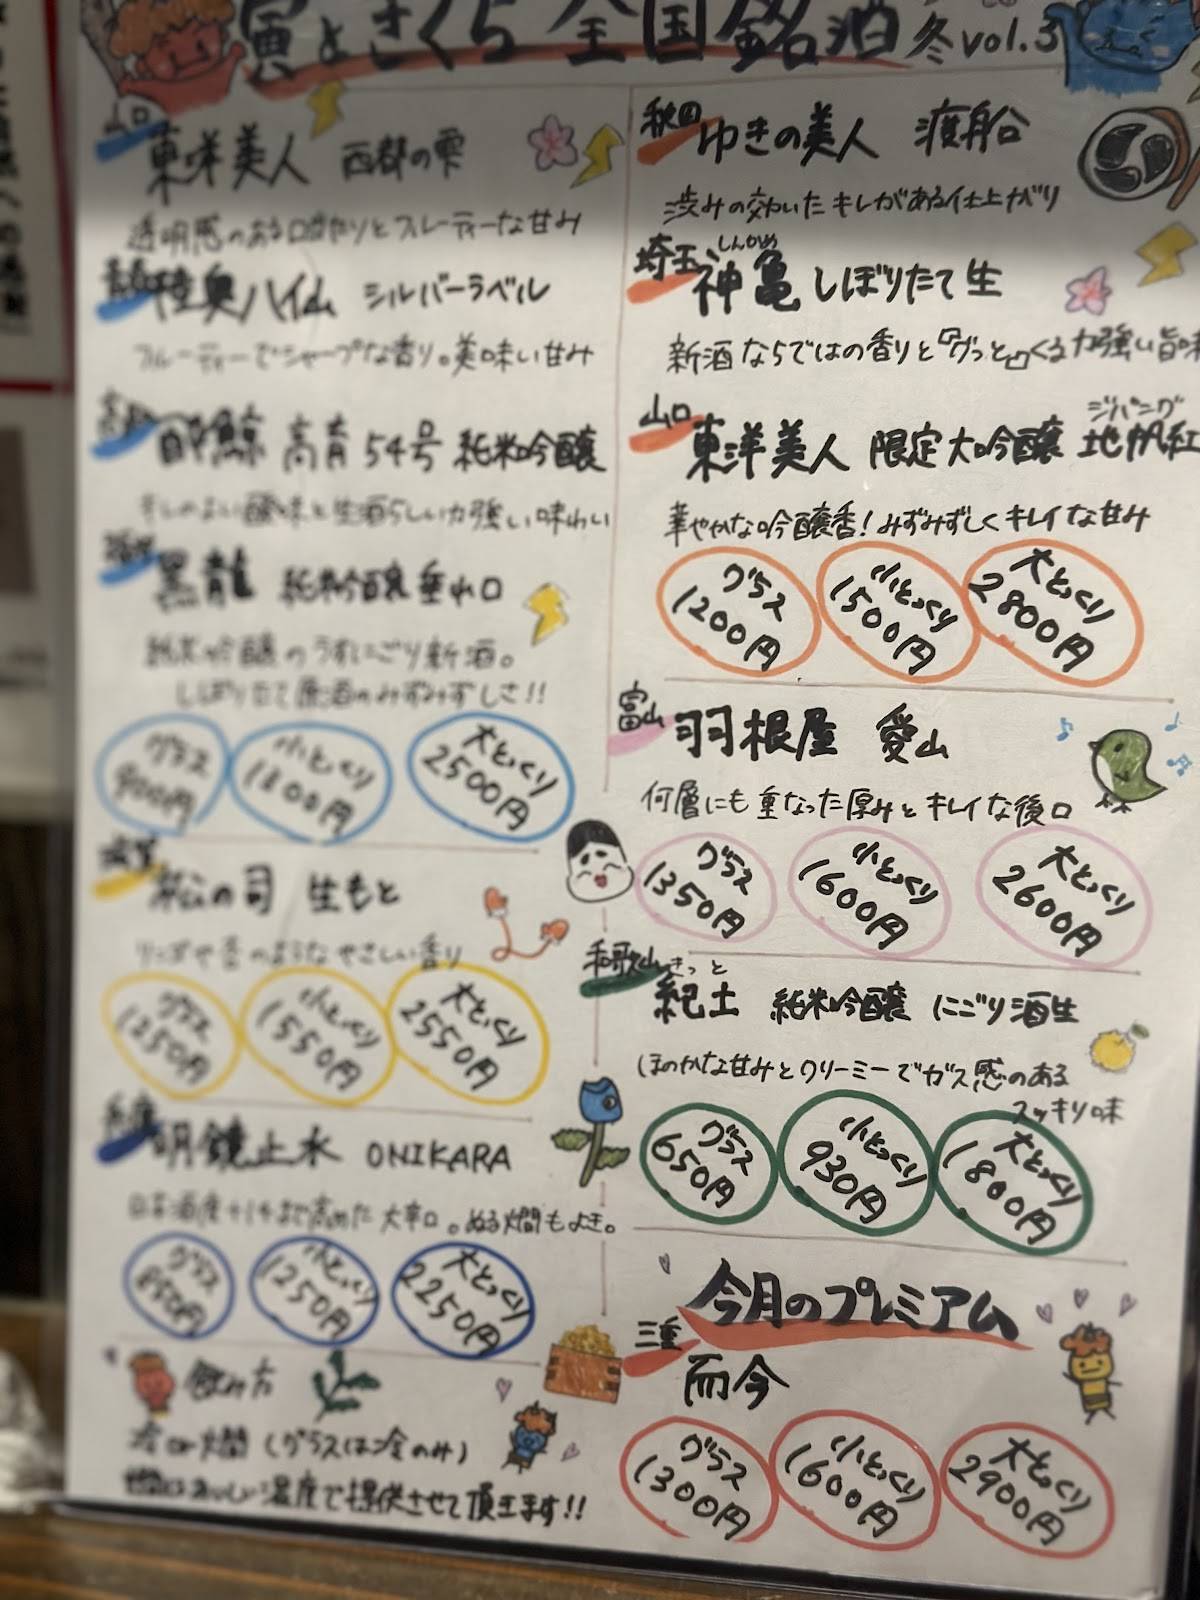 寅よさくら 全国銘酒 冬 vol.3
山口 東洋美人 西都の雫
透明感のある口当たりとフルーティーな甘み
青森 陸奥ハイム シルバーラベル
フルーティーでシャープな香り。美味い甘み
高知 酔鯨 高育54号 純米吟醸
キレのよい酸味と生酒らしい力強い味わい
福井 黒龍 純米吟醸 垂れ口
純米吟醸のうすにごり新酒。
しぼりたて原酒のみずみずしさ!!
グラス 900円
小とっくり
大とっくり 2500円
滋賀 松の司 生もと
のようなやさしい香り
グラス 1250円
小とっくり 1550円
大とっくり 2550円
長野 明鏡止水 ONIKARA
日本酒度+14まで高めた大辛口。ぬる燗もよき。
グラス 850円
小とっくり 1250円
大とっくり 2250円
飲み方
冷or燗(グラスは冷のみ)
おいしい温度で提供させて頂きます!!
秋田 ゆきの美人 渡船
渋みの効いたキレがある仕上がり
しんかめ
埼玉 神亀 しぼりたて生
新酒ならではの香りと『グッと』くる力強い旨味
ジパング
山口 東洋美人 限定大吟醸 地帆紅
華やかな吟醸香!みずみずしくキレイな甘み
グラス 1200円
小とっくり 1500円
大とっくり 2800円
富山 羽根屋 愛山
何層にも重なった厚みとキレイな後口
グラス 1350円
小とっくり 1600円
大とっくり 2600円
和歌山 きっど
紀土 純米吟醸 にごり酒生
ほのかな甘みとクリーミーでガス感のある
スッキリ味
グラス 650円
小とっくり 930円
大とっくり 1800円
今月のプレミアム
三重
而今
グラス 1300円
小とっくり 1600円
大とっくり 2900円